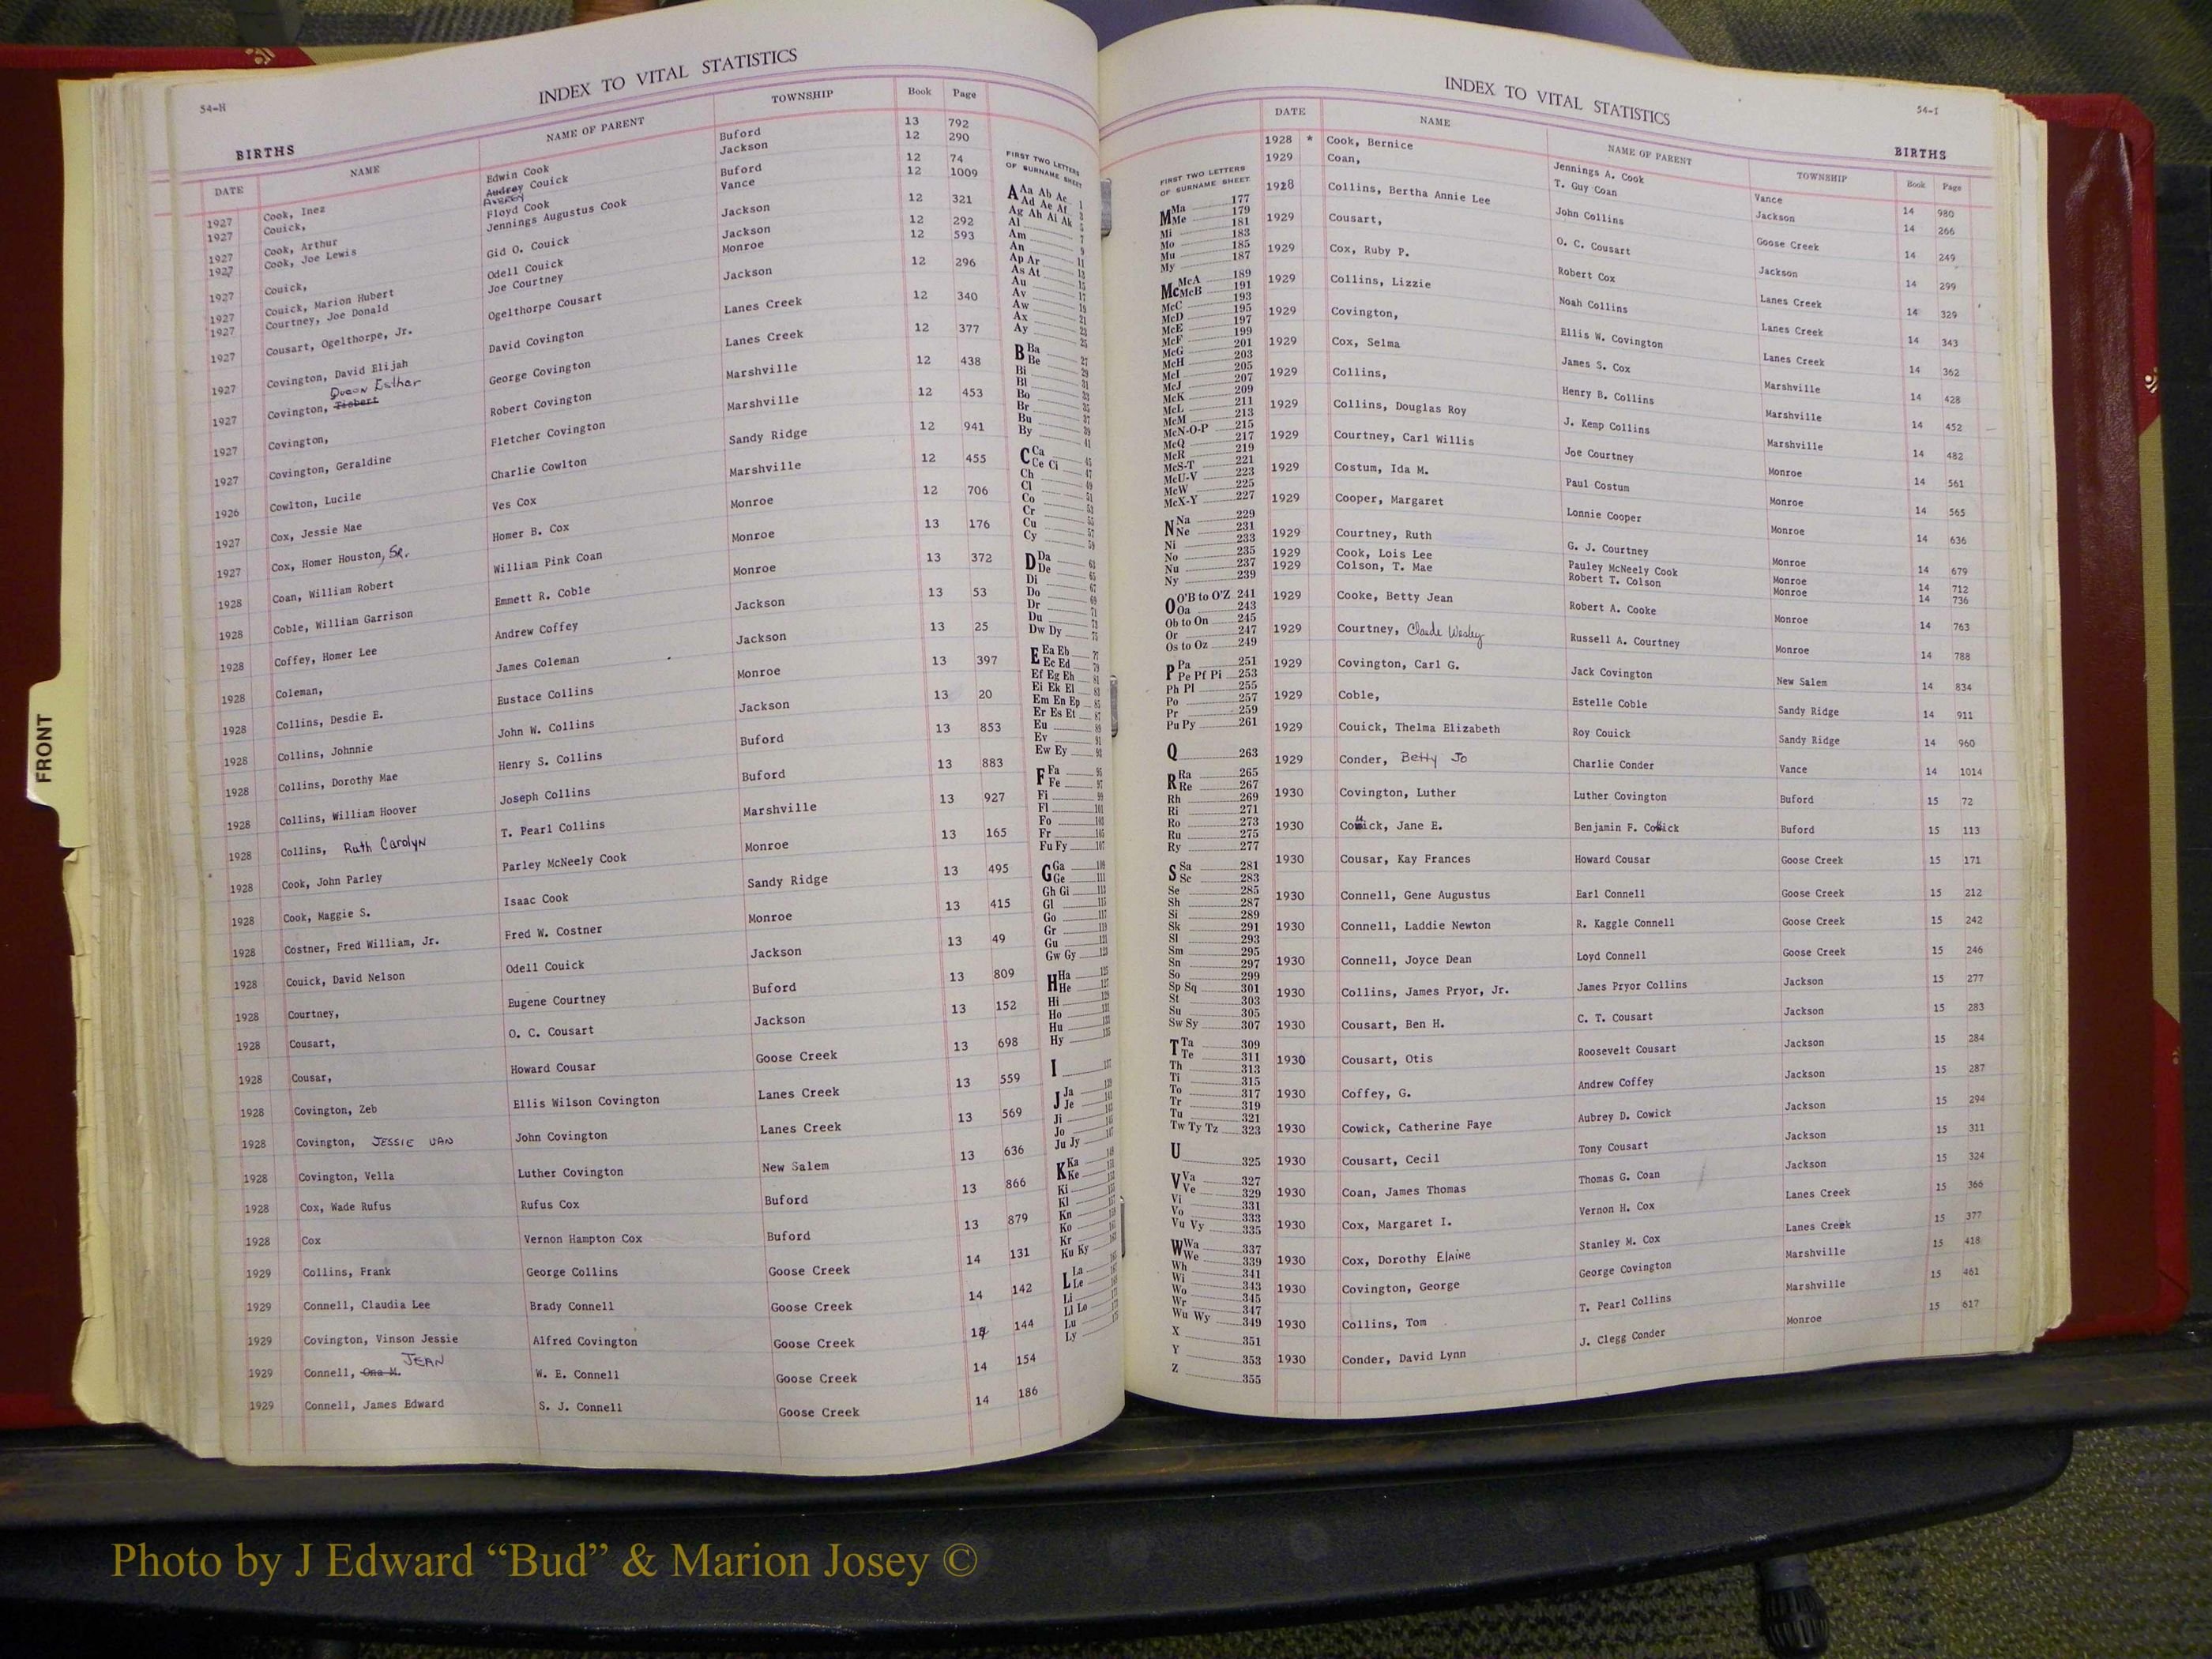 54-H
INDEX TO VITAL STATISTICS
BIRTHS
DATE NAME NAME OF PARENT TOWNSHIP Book Page
1927 Cook, Inez Edwin Cook Buford 13 792
1927 Couick, Audrey Aubrey Couick Jackson 12 290
1927 Cook, Arthur Floyd Cook Buford 12 74
1927 Cook, Joe Lewis Jennings Augustus Cook Vance 12 1009
1927 Couick, Gid O. Couick Jackson 12 321
1927 Couick, Marion Hubert Odell Couick Jackson 12 292
1927 Courtney, Joe Donald Joe Courtney Monroe 12 593
1927 Cousart, Ogelthorpe, Jr. Ogelthorpe Cousart Jackson 12 296
1927 Covington, David Elijah David Covington Lanes Creek 12 340
1927 Covington, Esther George Covington Lanes Creek 12 377
1927 Covington, Robert Covington Marshville 12 438
1927 Covington, Geraldine Fletcher Covington Marshville 12 453
1926 Cowlton, Lucile Charlie Cowlton Sandy Ridge 12 941
1927 Cox, Jessie Mae Ves Cox Marshville 12 455
1927 Cox, Homer Houston, Sr. Homer B. Cox Monroe 12 706
1928 Coan, William Robert William Pink Coan Monroe 13 176
1928 Coble, William Garrison Emmett R. Coble Monroe 13 372
1928 Coffey, Homer Lee Andrew Coffey Jackson 13 53
1928 Coleman, James Coleman Jackson 13 25
1928 Collins, Desdie E. Eustace Collins Monroe 13 397
1928 Collins, Johnnie John W. Collins Jackson 13 20
1928 Collins, Dorothy Mae Henry S. Collins Buford 13 853
1928 Collins, William Hoover Joseph Collins Buford 13 883
1928 Collins, Ruth Carolyn T. Pearl Collins Marshville 13 927
1928 Cook, John Parley Parley McNeely Cook Monroe 13 165
1928 Cook, Maggie S. Isaac Cook Sandy Ridge 13 495
1928 Costner, Fred William, Jr. Fred W. Costner Monroe 13 415
1928 Couick, David Nelson Odell Couick Jackson 13 49
1928 Courtney, Eugene Courtney Buford 13 809
1928 Cousart, O. C. Cousart Jackson 13 152
1928 Cousar, Howard Cousar Goose Creek 13 698
1928 Covington, Zeb Ellis Wilson Covington Lanes Creek 13 559
1928 Covington, JESSIE VAN John Covington Lanes Creek 13 569
1928 Covington, Vella Luther Covington New Salem 13 636
1928 Cox, Wade Rufus Rufus Cox Buford 13 866
1928 Cox Vernon Hampton Cox Buford 13 879
1929 Collins, Frank George Collins Goose Creek 14 131
1929 Connell, Claudia Lee Brady Connell Goose Creek 14 142
1929 Covington, Vinson Jessie Alfred Covington Goose Creek 14 144
1929 Connell, Ona M. JEAN W. E. Connell Goose Creek 14 154
1929 Connell, James Edward S. J. Connell Goose Creek 14 186
FIRST TWO LETTERS
OF SURNAME SHEET
A Aa Ab Ac 1
Ad Ae Af 3
Ag Ah Ai Ak 5
Al 7
Am 9
An 11
Ap Ar 13
As At 15
Au 17
Av 19
Aw 21
Ax 23
Ay 25
B Ba 27
Be 29
Bi 31
Bl 33
Bo 35
Br 37
Bu 39
By 41
C Ca 45
Ce Ci 47
Ch 49
Cl 51
Co 53
Cr 55
Cu 57
Cy 59
D Da 63
De 65
Di 67
Do 69
Dr 71
Du 73
Dw Dy 75
E Ea Eb 77
Ec Ed 79
Ef Eg Eh 81
Ei Ek El 83
Em En Ep 85
Er Es Et 87
Eu 89
Ev 91
Ew Ey 93
F Fa 95
Fe 97
Fi 99
Fl 101
Fo 103
Fr 105
Fu Fy 107
G Ga 109
Ge 111
Gh Gi 113
Gl 115
Go 117
Gr 119
Gu 121
Gw Gy 123
H Ha 125
He 127
Hi 129
Ho 131
Hu 133
Hy 135
I 137
J Ja
Je
Ji
Jo
Ju Jy
K Ka
Ke
Ki
Kl
Kn
Ko
Kr
Ku Ky
L La
Le
Li
Ll Lo
Lu
Ly
INDEX TO VITAL STATISTICS
54-I
BIRTHS
FIRST TWO LETTERS
OF SURNAME SHEET
M Ma 177
Me 179
Mi 181
Mo 183
Mu 185
My 187
Mc McA 189
McB 191
McC 193
McD 195
McE 197
McF 199
McG 201
McH 203
McI 205
McJ 207
McK 209
McL 211
McM 213
McN-O-P 215
McQ 217
McR 219
McS-T 221
McU-V 223
McW 225
McX-Y 227
N Na 229
Ne 231
Ni 233
No 235
Nu 237
Ny 239
O O'B to O'Z 241
Oa 243
Ob to On 245
Or 247
Os to Oz 249
P Pa 251
Pe Pf Pi 253
Ph Pl 255
Po 257
Pr 259
Pu Py 261
Q 263
R Ra 265
Re 267
Rh 269
Ri 271
Ro 273
Ru 275
Ry 277
S Sa 281
Sc 283
Se 285
Sh 287
Si 289
Sk 291
Sl 293
Sm 295
Sn 297
So 299
Sp Sq 301
St 303
Su 305
Sw Sy 307
T Ta 309
Te 311
Th 313
Ti 315
To 317
Tr 319
Tu 321
Tw Ty Tz 323
U 325
V Va 327
Ve 329
Vi 331
Vo 333
Vu Vy 335
W Wa 337
We 339
Wh 341
Wi 343
Wo 345
Wr 347
Wu Wy 349
X 351
Y 353
Z 355
DATE NAME NAME OF PARENT TOWNSHIP Book Page
1928 * Cook, Bernice Jennings A. Cook Vance 14 980
1929 Coan, T. Guy Coan Jackson 14 266
1928 Collins, Bertha Annie Lee John Collins Goose Creek 14 249
1929 Cousart, O. C. Cousart Jackson 14 299
1929 Cox, Ruby P. Robert Cox Lanes Creek 14 329
1929 Collins, Lizzie Noah Collins Lanes Creek 14 343
1929 Covington, Ellis W. Covington Lanes Creek 14 362
1929 Cox, Selma James S. Cox Marshville 14 428
1929 Collins, Henry B. Collins Marshville 14 452
1929 Collins, Douglas Roy J. Kemp Collins Marshville 14 482
1929 Courtney, Carl Willis Joe Courtney Monroe 14 561
1929 Costum, Ida M. Paul Costum Monroe 14 565
1929 Cooper, Margaret Lonnie Cooper Monroe 14 636
1929 Courtney, Ruth G. J. Courtney Monroe 14 679
1929 Cook, Lois Lee Pauley McNeely Cook Monroe 14 712
1929 Colson, T. Mae Robert T. Colson Monroe 14 736
1929 Cooke, Betty Jean Robert A. Cooke Monroe 14 763
1929 Courtney, Claude Wesley Russell A. Courtney Monroe 14 788
1929 Covington, Carl G. Jack Covington New Salem 14 834
1929 Coble, Estelle Coble Sandy Ridge 14 911
1929 Couick, Thelma Elizabeth Roy Couick Sandy Ridge 14 960
1929 Conder, Betty Jo Charlie Conder Vance 14 1014
1930 Covington, Luther Luther Covington Buford 15 72
1930 Couick, Jane E. Benjamin F. Couick Buford 15 113
1930 Cousar, Kay Frances Howard Cousar Goose Creek 15 171
1930 Connell, Gene Augustus Earl Connell Goose Creek 15 212
1930 Connell, Laddie Newton R. Kaggle Connell Goose Creek 15 242
1930 Connell, Joyce Dean Loyd Connell Goose Creek 15 246
1930 Collins, James Pryor, Jr. James Pryor Collins Jackson 15 277
1930 Cousart, Ben H. C. T. Cousart Jackson 15 283
1930 Cousart, Otis Roosevelt Cousart Jackson 15 284
1930 Coffey, G. Andrew Coffey Jackson 15 287
1930 Cowick, Catherine Faye Aubrey D. Cowick Jackson 15 294
1930 Cousart, Cecil Tony Cousart Jackson 15 311
1930 Coan, James Thomas Thomas G. Coan Jackson 15 324
1930 Cox, Margaret I. Vernon H. Cox Lanes Creek 15 366
1930 Cox, Dorothy ElAINE Stanley M. Cox Lanes Creek 15 377
1930 Covington, George George Covington Marshville 15 418
1930 Collins, Tom T. Pearl Collins Marshville 15 461
1930 Conder, David Lynn J. Clegg Conder Monroe 15 617
FRONT
Photo by J Edward “Bud” & Marion Josey ©